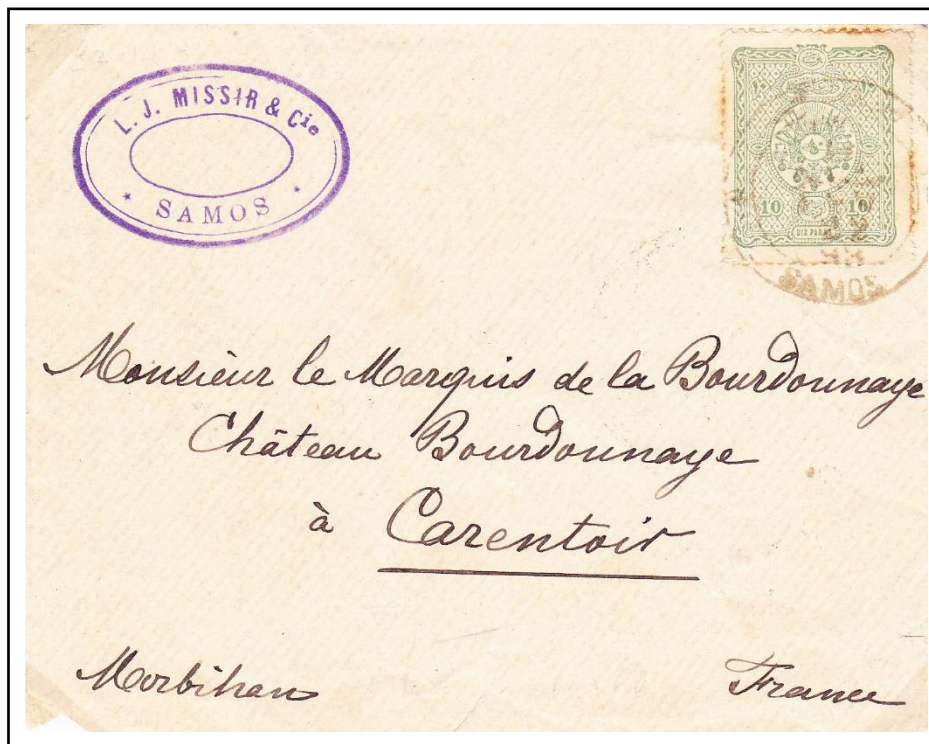 L. J. MISSIR & Cie
SAMOS
10 10
DIX PARAS
SAMOS
Monsieur le Marquis de la Bourdonnaye
Château Bourdonnaye
à Carentoir
Morbihan France